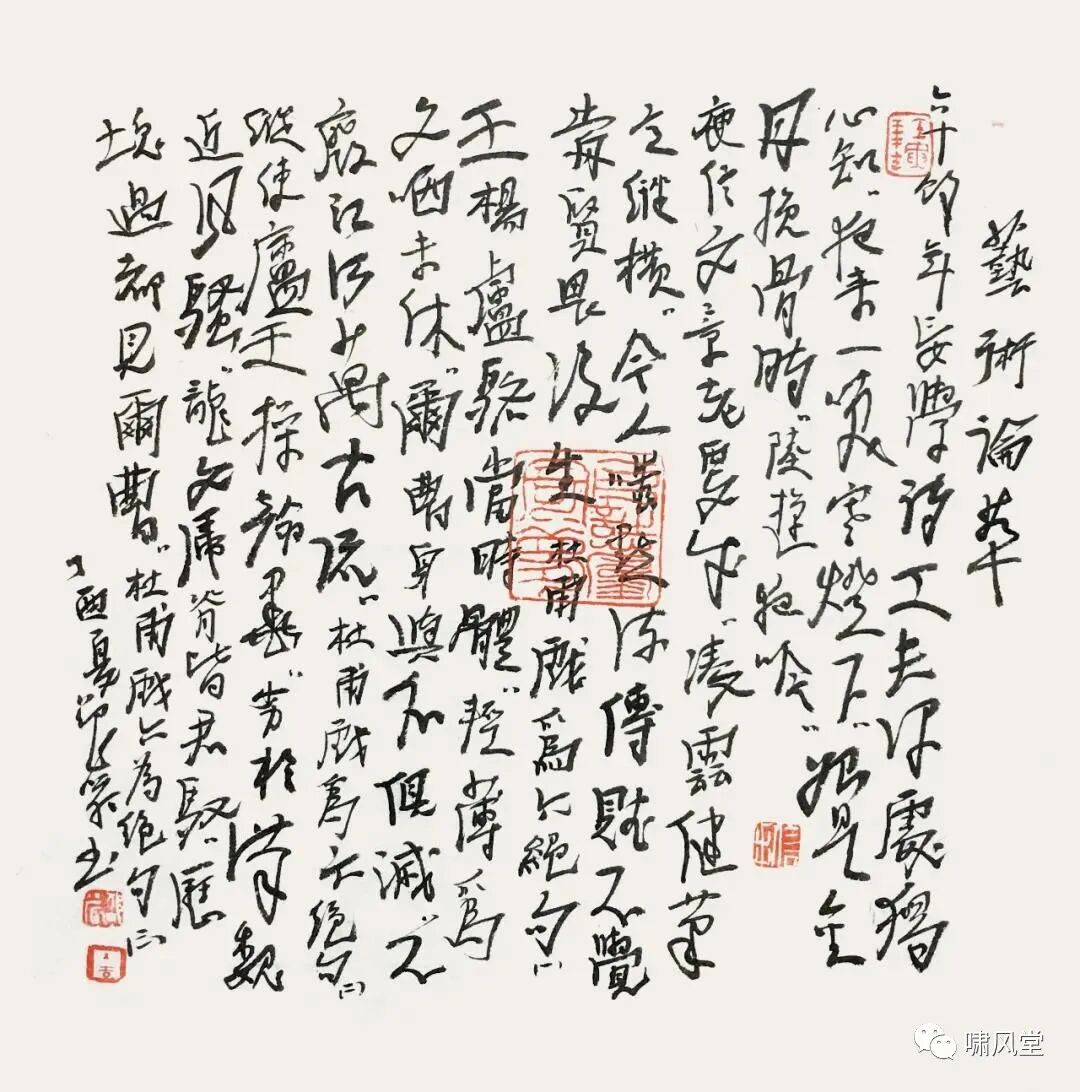 藝術論若干
六十餘年妄學詩工夫深處獨
心知"夜来一笑寒燈下"始是金
丹換骨時"陸遊夜吟
庾信文章老更成"凌雲健筆
意縱橫"今人嗤點流傳賦不覺
前賢畏後生 杜甫戲爲六絕句(一)
王楊盧駱當時體"輕薄爲
文哂未休"爾曹身與名俱滅"不
廢江河萬古流"杜甫戲爲六絕句(二)
縱使盧王操翰墨"劣於漢魏
近風騷"龍文虎脊皆君馭"歷
塊過都見爾曹"杜甫戲六為絕句(三)
丁酉夏 書
啸风堂